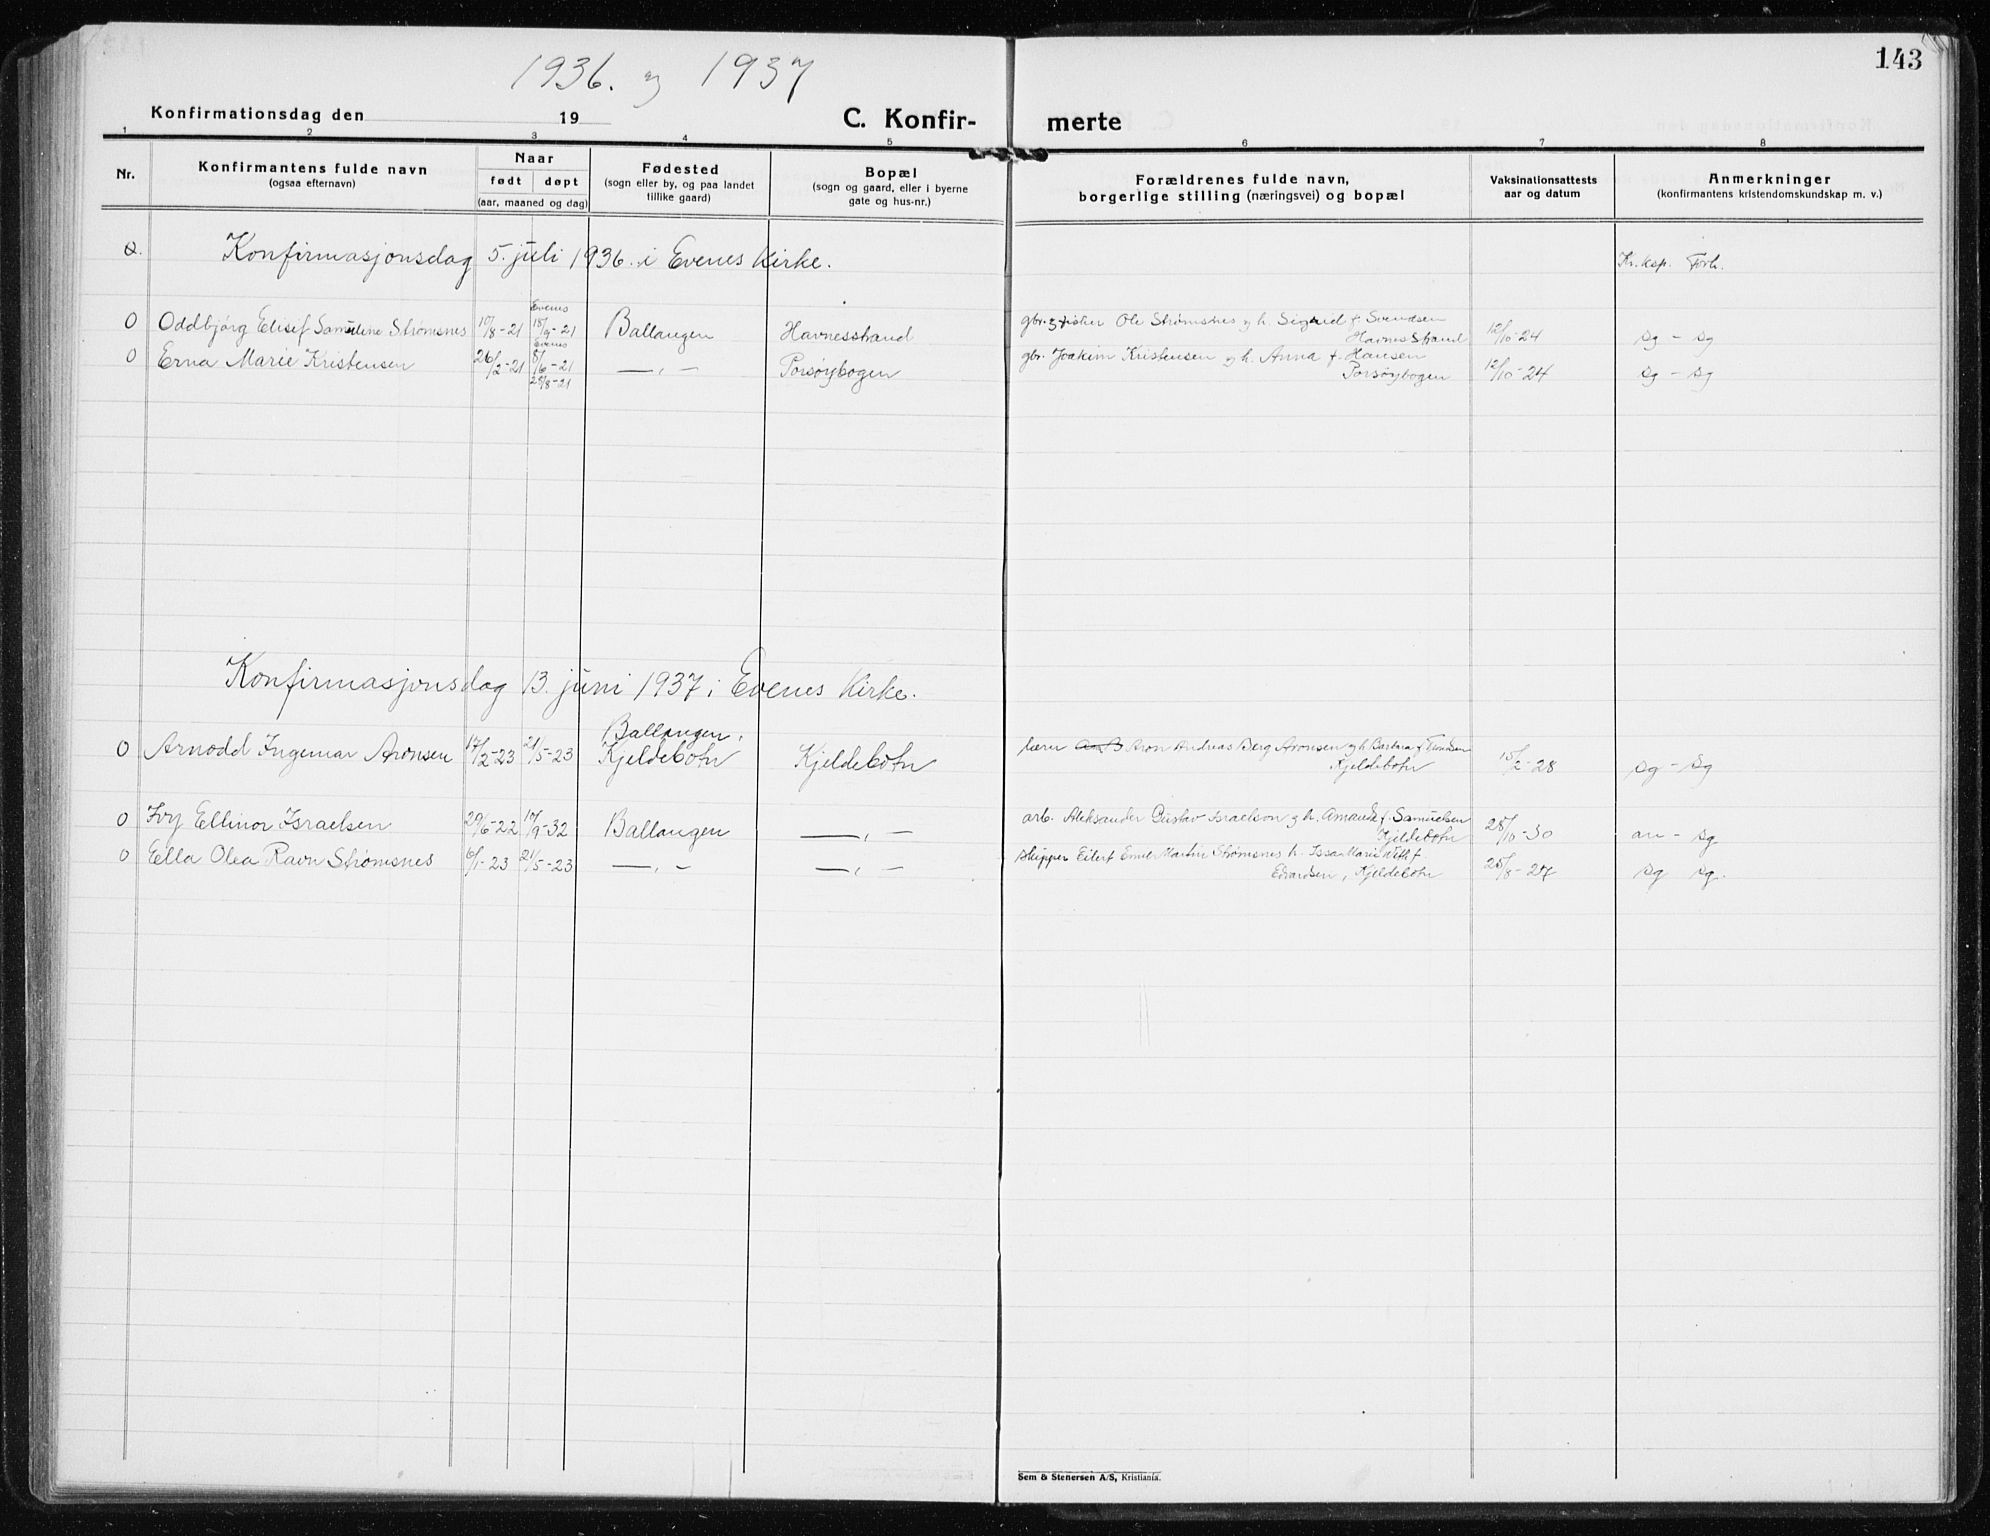 143
1936. og 1937
Konfirmationsdag den 19
C. Konfir-merte
1 2 3 4 5 6 7 8
Nr.
Konfirmantens fulde navn
(ogsaa efternavn)
Naar
født døpt
(aar, maaned og dag)
Fødested
(sogn eller by, og paa landet
tillike gaard)
Bopæl
(sogn og gaard, eller i byerne
gate og hus-nr.)
Forældrenes fulde navn,
borgerlige stilling (næringsvei) og bopæl
Vaksinationsattests
aar og datum
Anmerkninger
(konfirmantens kristendomskundskap m. v.)
Konfirmasjonsdag 5. juli 1936. i Evenes Kirke.
Kr. ksp. Forh.
Evenes
0 Oddbjörg Elisif Samuline Strømsnes 10/8-21 18/9-21 Ballangen Havnesstrand gbr. og fisker Ole Strømsnes og h. Sigrud f. Svendsen
Havnes Strand 12/10-24 sg - sg
Evenes
0 Erna Marie Kristensen 26/2-21 5/6-21 —„— Porsøybogen gbr. Joakim Kristensen og h. Anna f. Hansen
28/8-21 Porsøybogen 12/10-24 sg - sg
Konfirmasjonsdag 13. juni 1937 i Evenes Kirke.
Ballangen,
0 Arnodd Ingemar Aronsen 17/2-23 21/5-23 Kjeldebotn Kjeldebotn Aron Andreas Berg Aronsen og h. Barbara f.
Kjeldebotn 15/2-28 sg - sg
0 Ivy Ellinor Israelsen 29/6-22 17/9-32 Ballangen —„— arb. Aleksander Gustav Israelson og h. Amanda f. Samuelsen
Kjeldebotn 28/10-30 an - sg
0 Ella Olea Ravn Strømsnes 6/1-23 21/5-23 —„— —„— skipper Eilert Emil Martin Strømsnes h. Marie f.
Edvardsen, Kjeldebotn 25/8-27 sg sg.
Sem & Stenersen A/S, Kristiania.